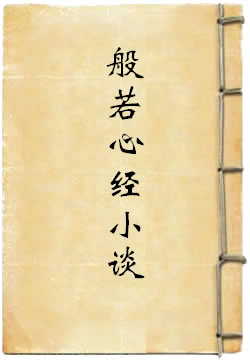 般若心经小谈